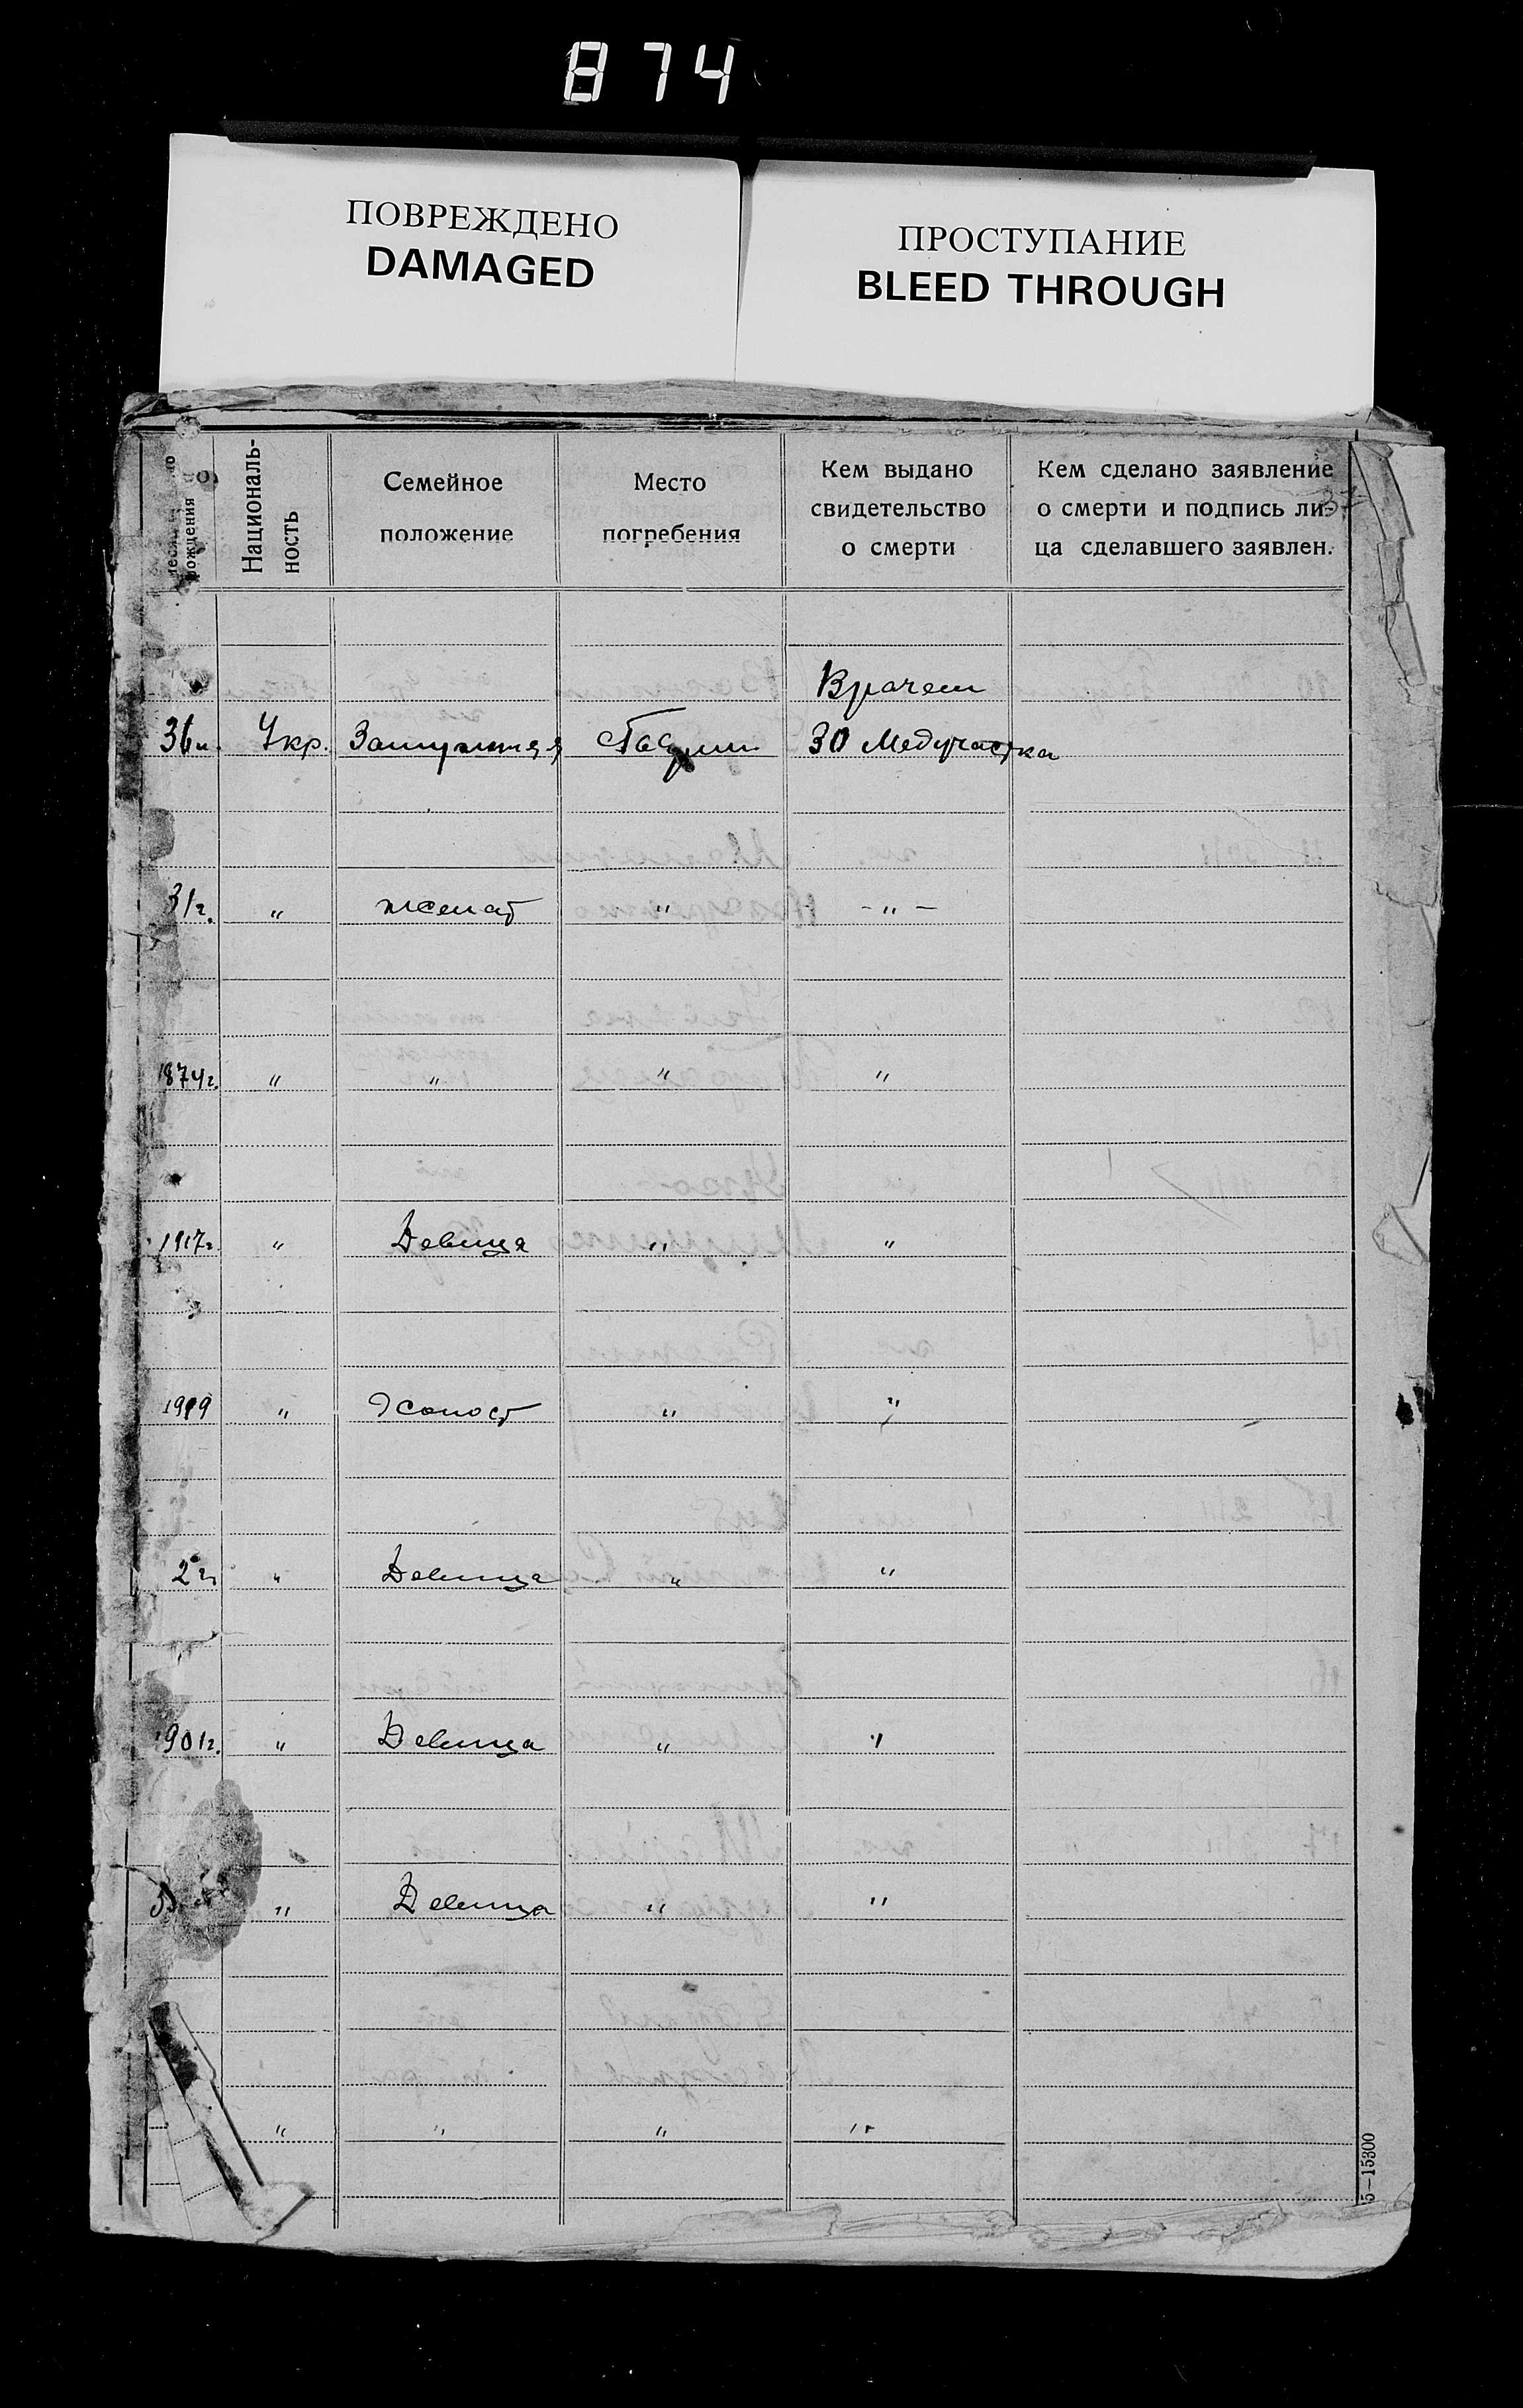 874
ПОВРЕЖДЕНО
DAMAGED
ПРОСТУПАНИЕ
BLEED THROUGH
рождения
Националь-
ность
Семейное
положение
Место
погребения
Кем выдано
свидетельство
о смерти
Кем сделано заявление
о смерти и подпись ли-
ца сделавшего заявлен.
Врачем
36 Укр. Замужняя 30 Медучастка
31г. " женат " - " -
1874г. " " " "
1917г. " Девица " "
1919 " Холост " "
2 г. " Девица " "
901г. " Девица " "
" Девица " "
" " " "
5—15300